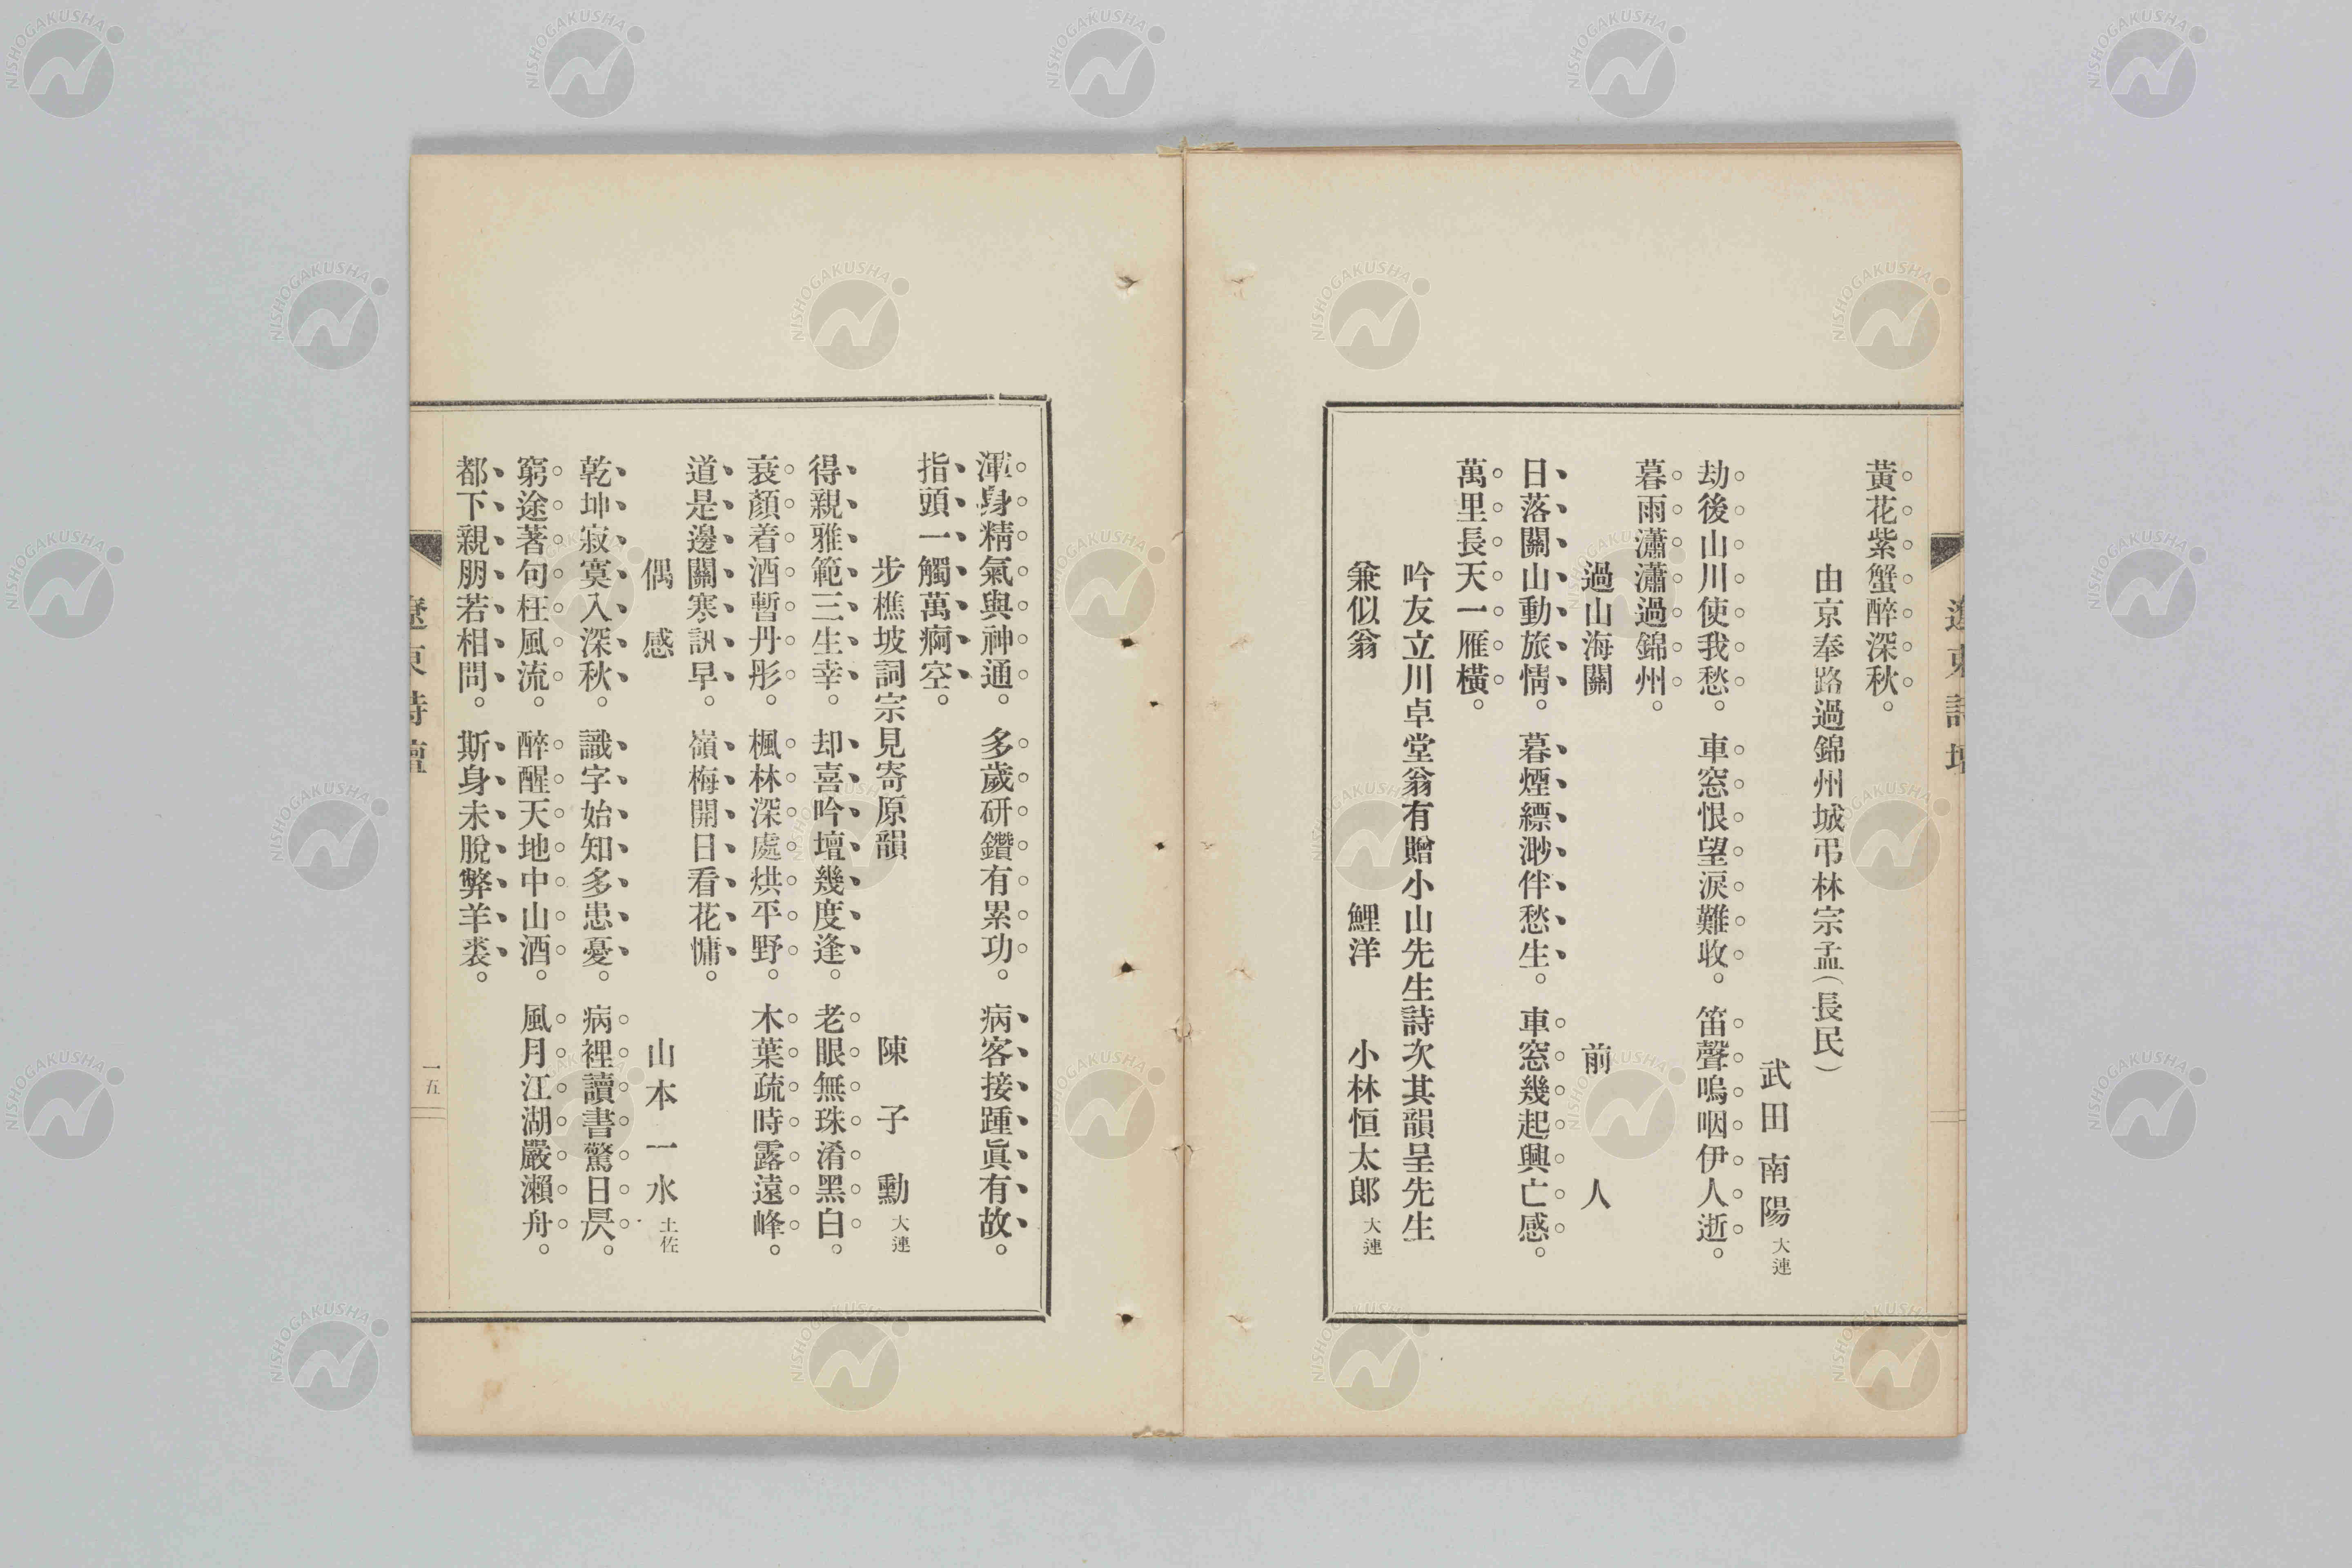 黃花紫蟹醉深秋。
由京奉路過錦州城弔林宗孟(長民)
武田南陽 大連
劫後山川使我愁。車窓恨望淚難收。笛聲嗚咽伊人逝。
暮雨瀟瀟過錦州。
過山海關 前人
日落關山動旅情。暮煙縹渺伴愁生。車窓幾起興亡感。
萬里長天一雁橫。
吟友立川卓堂翁有贈小山先生詩次其韻呈先生
兼似翁 鯉洋 小林恒太郎 大連
渾身精氣與神通。多歲硏鑽有累功。病客接踵眞有故。
指頭一觸萬痾空。
步樵坡詞宗見寄原韻 陳子勳 大連
得親雅範三生幸。却喜吟壇幾度逢。老眼無珠淆黑白。
衰顏着酒暫丹彤。楓林深處烘平野。木葉疏時露遠峰。
道是邊關寒訊早。嶺梅開日看花慵。
偶感 山本一水 土佐
乾坤寂寞入深秋。識字始知多患憂。病裡讀書驚日昃。
窮途著句枉風流。醉醒天地中山酒。風月江湖嚴瀨舟。
都下親朋若相問。斯身未脫弊羊裘。
遼東詩壇
一五
NISHOGAKUSHA